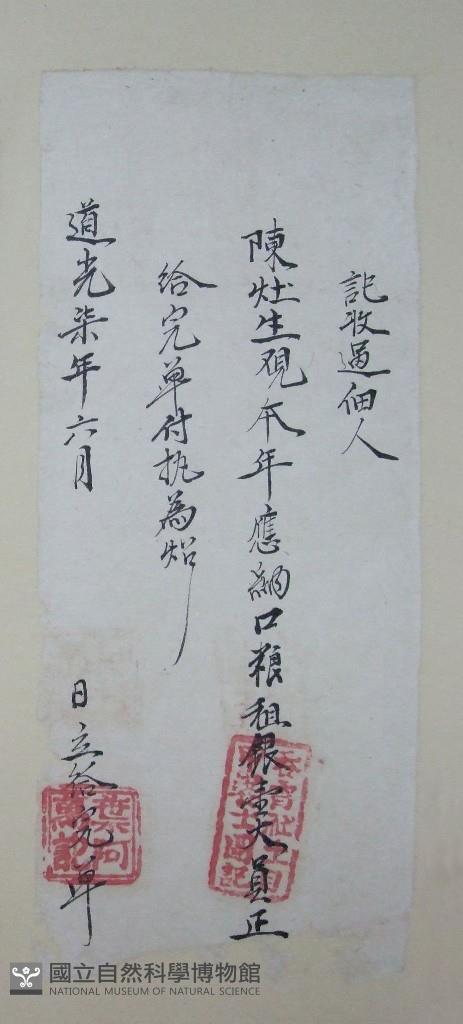 記收過佃人
陳灶生現本年應納口粮租銀壹大員正
給完單付执為炤
道光柒年六月 日立給完单
國立自然科學博物館
NATIONAL MUSEUM OF NATURAL SCIENCE